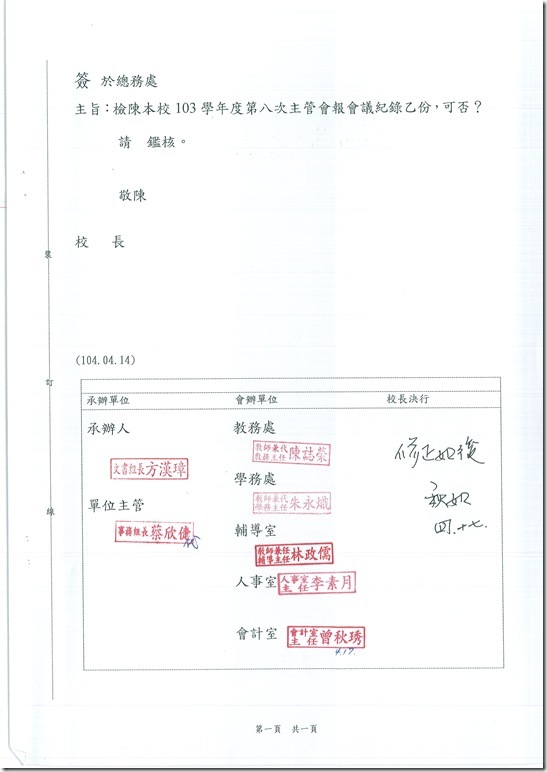 簽 於總務處
主旨：檢陳本校 103 學年度第八次主管會報會議紀錄乙份，可否？
請 鑑核。
敬陳
校 長
裝
訂
線
(104.04.14)
承辦單位 會辦單位 校長決行
承辦人 教務處
文書組長 方漢璋
教師兼代教務主任 陳誌榮
學務處
教師兼代學務主任 朱永熾
單位主管
事務組長 蔡欣倢 代
輔導室
教師兼任輔導主任 林政儒
人事室 人事室主任 李素月
會計室 會計室主任 曾秋琇
4.17.
修正如後
四.十七.
第一頁 共一頁